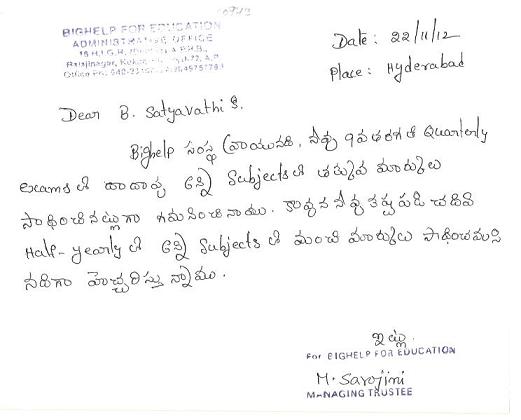 BIGHELP FOR EDUCATION
ADMINISTRATIVE OFFICE
Date: 22/11/12
Place: Hyderabad
Dear B. Satyavathi S.
Bighelp సంస్థ వ్రాయునది, నీవు 9వ తరగతి Quarterly
exams లో దాదాపు అన్ని Subjects లో తక్కువ మార్కులు
సాధించినట్లుగా గమనించినాము. కావున నీవు కష్టపడి చదివి
Half-yearly లో అన్ని Subjects లో మంచి మార్కులు సాధించవలసి
నదిగా హెచ్చరిస్తున్నాము.
ఇట్లు
For BIGHELP FOR EDUCATION
M. Sarojini
MANAGING TRUSTEE